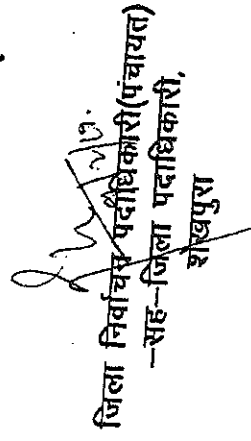 जिला निर्वाचन पदाधिकारी(पंचायत)
-सह-जिला पदाधिकारी,
शेखपुरा